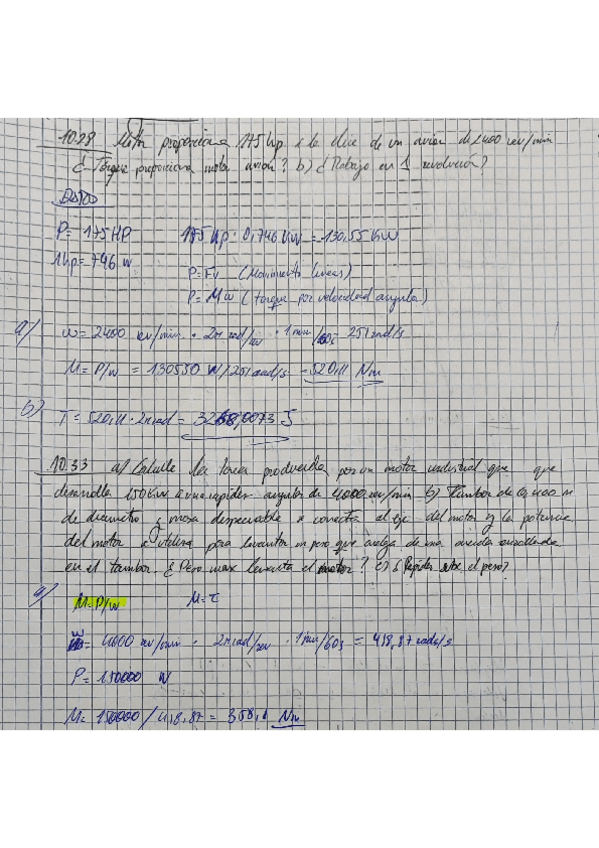 10.28 Motor proporciona 175 hp a la élice de un avion de 2400 rev/min
¿Torque proporciona motor avion? b) ¿Trabajo en 1 revolución?
DATOS
P= 175 HP 175 hp · 0,746 kW = 130,55 kW
1hp= 746 w
P= Fv (Movimiento lineal)
P= Mω (torque por velocidad angular)
a) ω= 2400 rev/min · 2π rad/rev · 1 min/60s = 251 rad/s
M= P/ω = 130550 W/251 rad/s = 520,11 Nm
b) T= 520,11 · 2π rad = 3268,0073 J
10.33 a) Calcule la torca producida por un motor industrial que que
desarrolla 150 KW a una rapidez angular de 4000 rev/min b) Tambor de 0,400 m
de diametro y masa despreciable se conecta al eje del motor y la potencia
del motor se utiliza para levantar un peso que cuelga de una cuerda enrollada
en el tambor. ¿ Peso max levanta el motor? c) ¿ Rapidez sube el peso?
a)
M= P/ω M= τ
= 4000 rev/min · 2π rad/rev · 1 min/60s = 418,87 rads/s
P= 150000 W
M= 150000 / 418,87 = 358,1 Nm